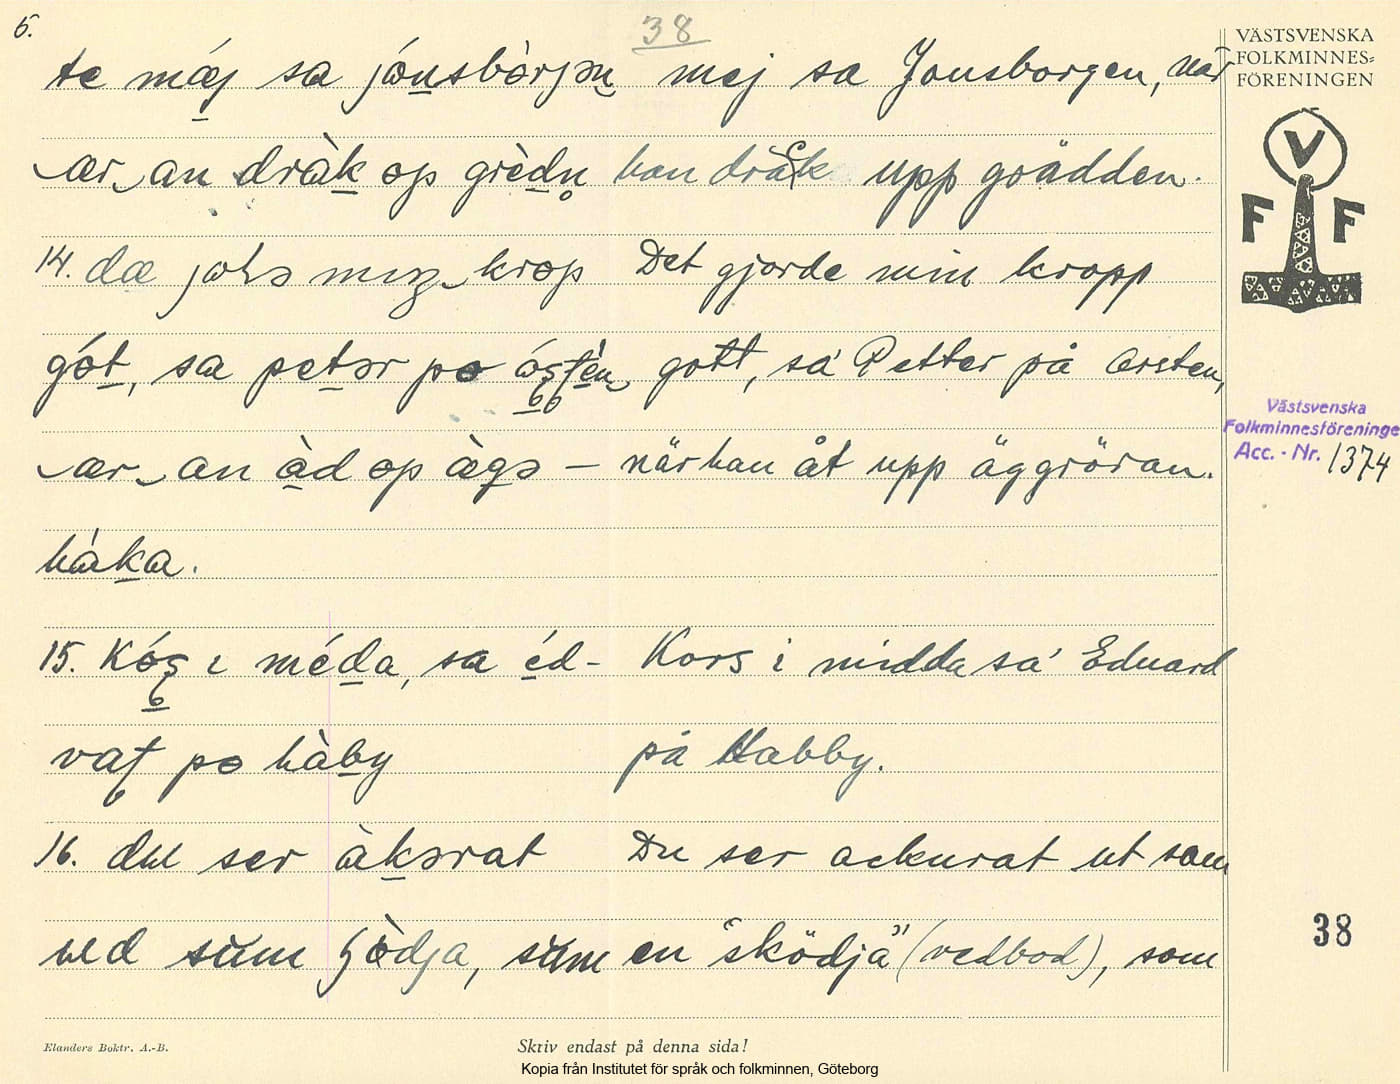 5.
38
VÄSTSVENSKA
FOLKMINNES=
FÖRENINGEN
V
F F
te mǽj sa jónsbòrjən mej sa Jonsborgen, när
ær an dràk op grèdn̥ han drack upp grädden.
14. dæ johə mıŋ krop Det gjorde min kropp
gót, sa petər po gott, sa' Petter på Orsten,
ær an àd op ægə – när han åt upp äggröran.
hàka.
15. ı méda, sa éd- Kors i midda sa' Eduard
po hàby på Habby.
16. du ser àkərat Du ser ackurat ut som
ud sum sum en "sködja" (vedbod), som
Västsvenska
Folkminnesföreninge
Acc. - Nr. 1374
38
Elanders Boktr. A.-B.
Skriv endast på denna sida!
Kopia från Institutet för språk och folkminnen, Göteborg